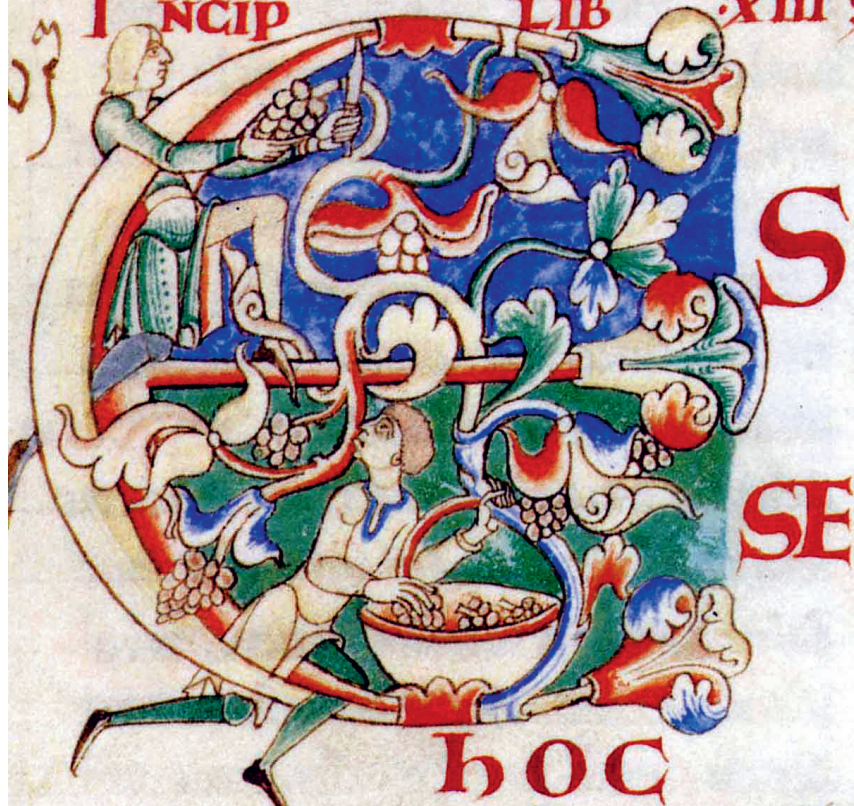 INCIP LIB ·XIII
E S
SE
hOC